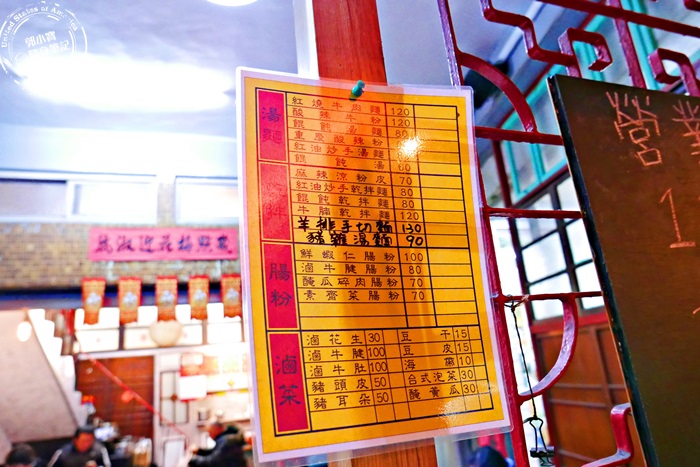 United States of
郭小寶
湯麵
紅燒牛肉麵 120
酸辣牛粉 120
餛飩湯麵 80
東炭酸辣粉
紅油炒手湯麵
餛飩湯 60
麻辣涼粉皮 70
紅油炒手乾拌麵 80
餛飩乾拌麵 80
牛腩乾拌麵 120
羊排手切麵 130
豬雜湯麵 90
腸粉
鮮蝦仁腸粉 100
滷牛腱腸粉 80
醃瓜碎肉腸粉 70
素齋菜腸粉 70
滷菜
滷花生 30 豆干 15
滷牛腱 100 豆皮 15
滷牛肚 100 海帶 10
豬頭皮 50 台式泡菜 30
豬耳朵 50 醃黃瓜 30
營業
1